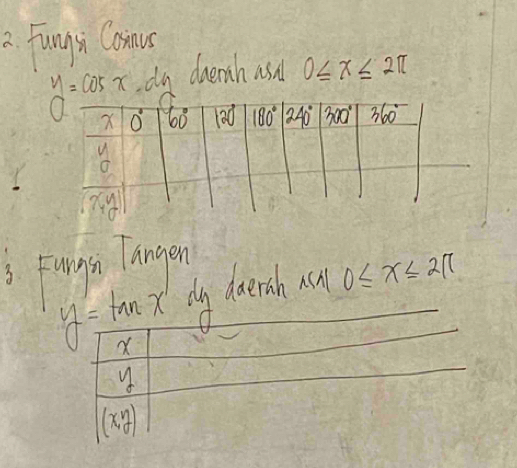 2. Fungsi Cosinus
y = cos x dg daerah asal 0 ≤ x ≤ 2π
x 0° 60° 120° 180° 240° 300° 360°
y
(x,y)
3 Fungsi Tangen
y = tan x dg daerah asal 0 ≤ x ≤ 2π
x
y
(x,y)